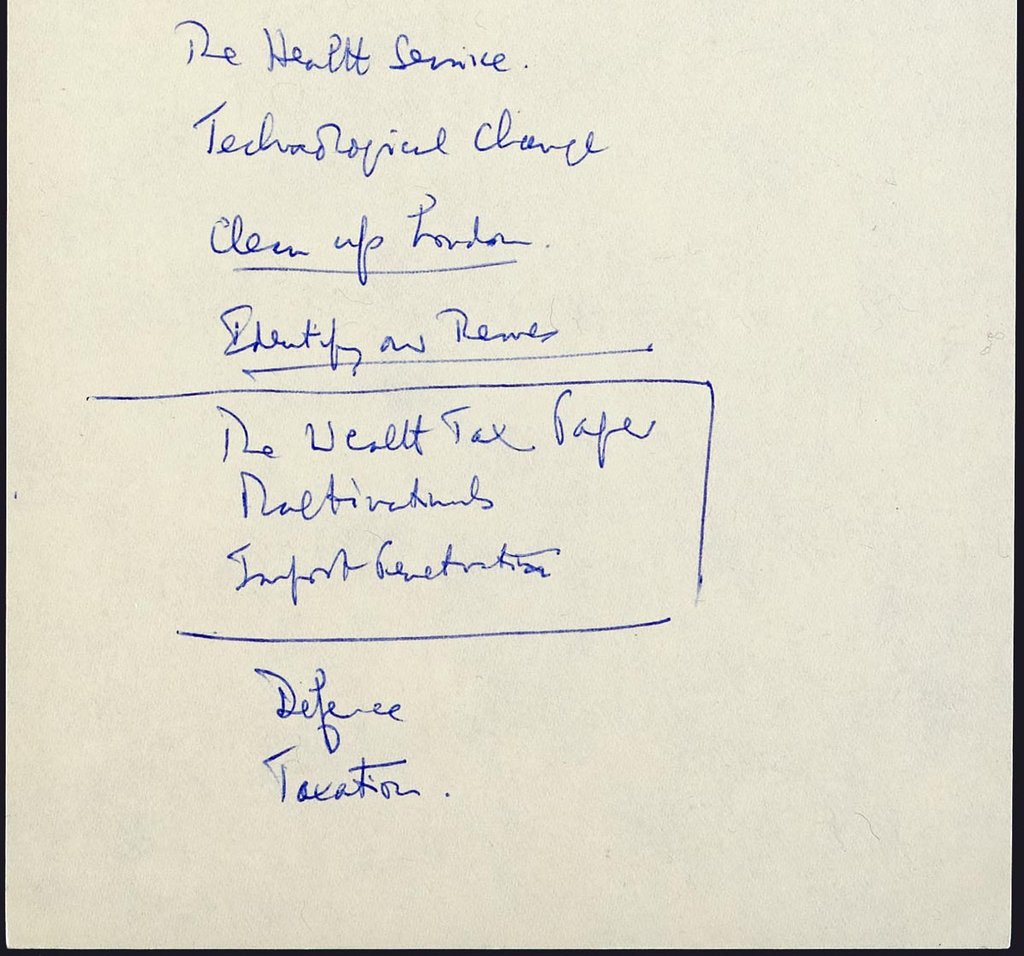 The Health Service.
Technological Change
Clean up London.
Identify our Themes
The Wealth Tax Paper
Multinationals
Import Penetration
Defence
Taxation.